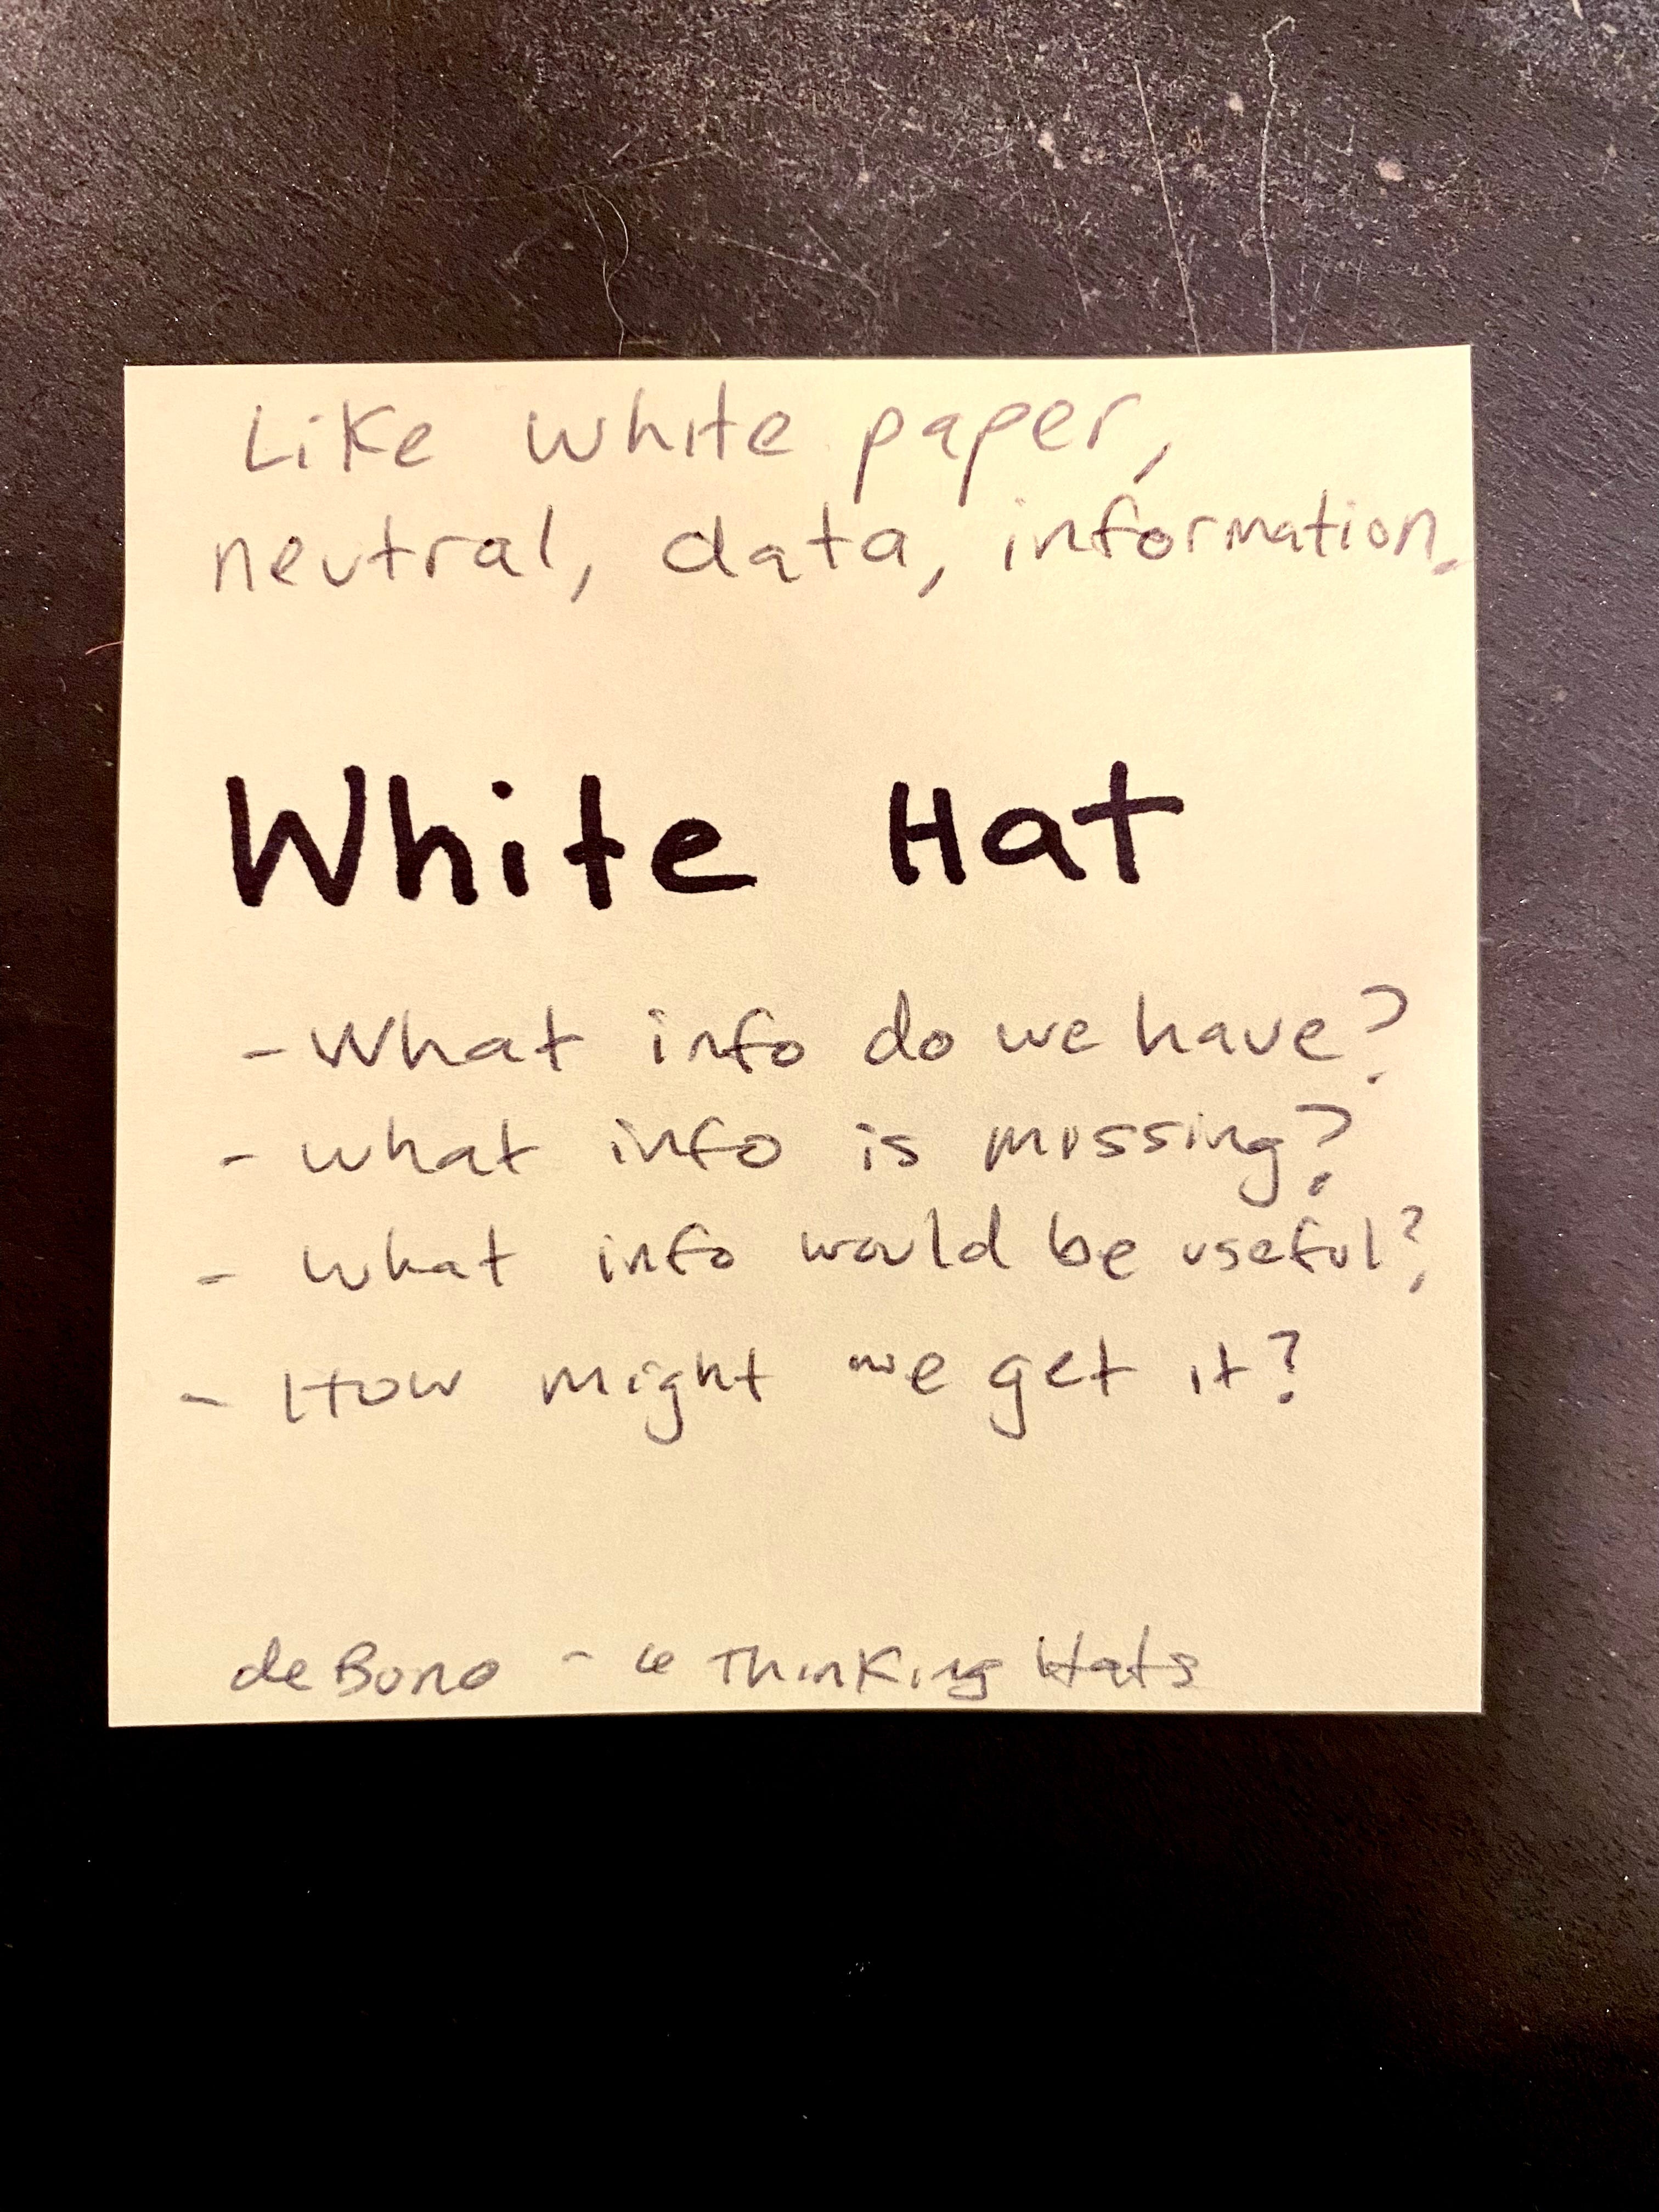 Like white paper,
neutral, data, information.
White Hat
- What info do we have?
- what info is missing?
- what info would be useful?
- How might we get it?
de Bono - 6 Thinking Hats